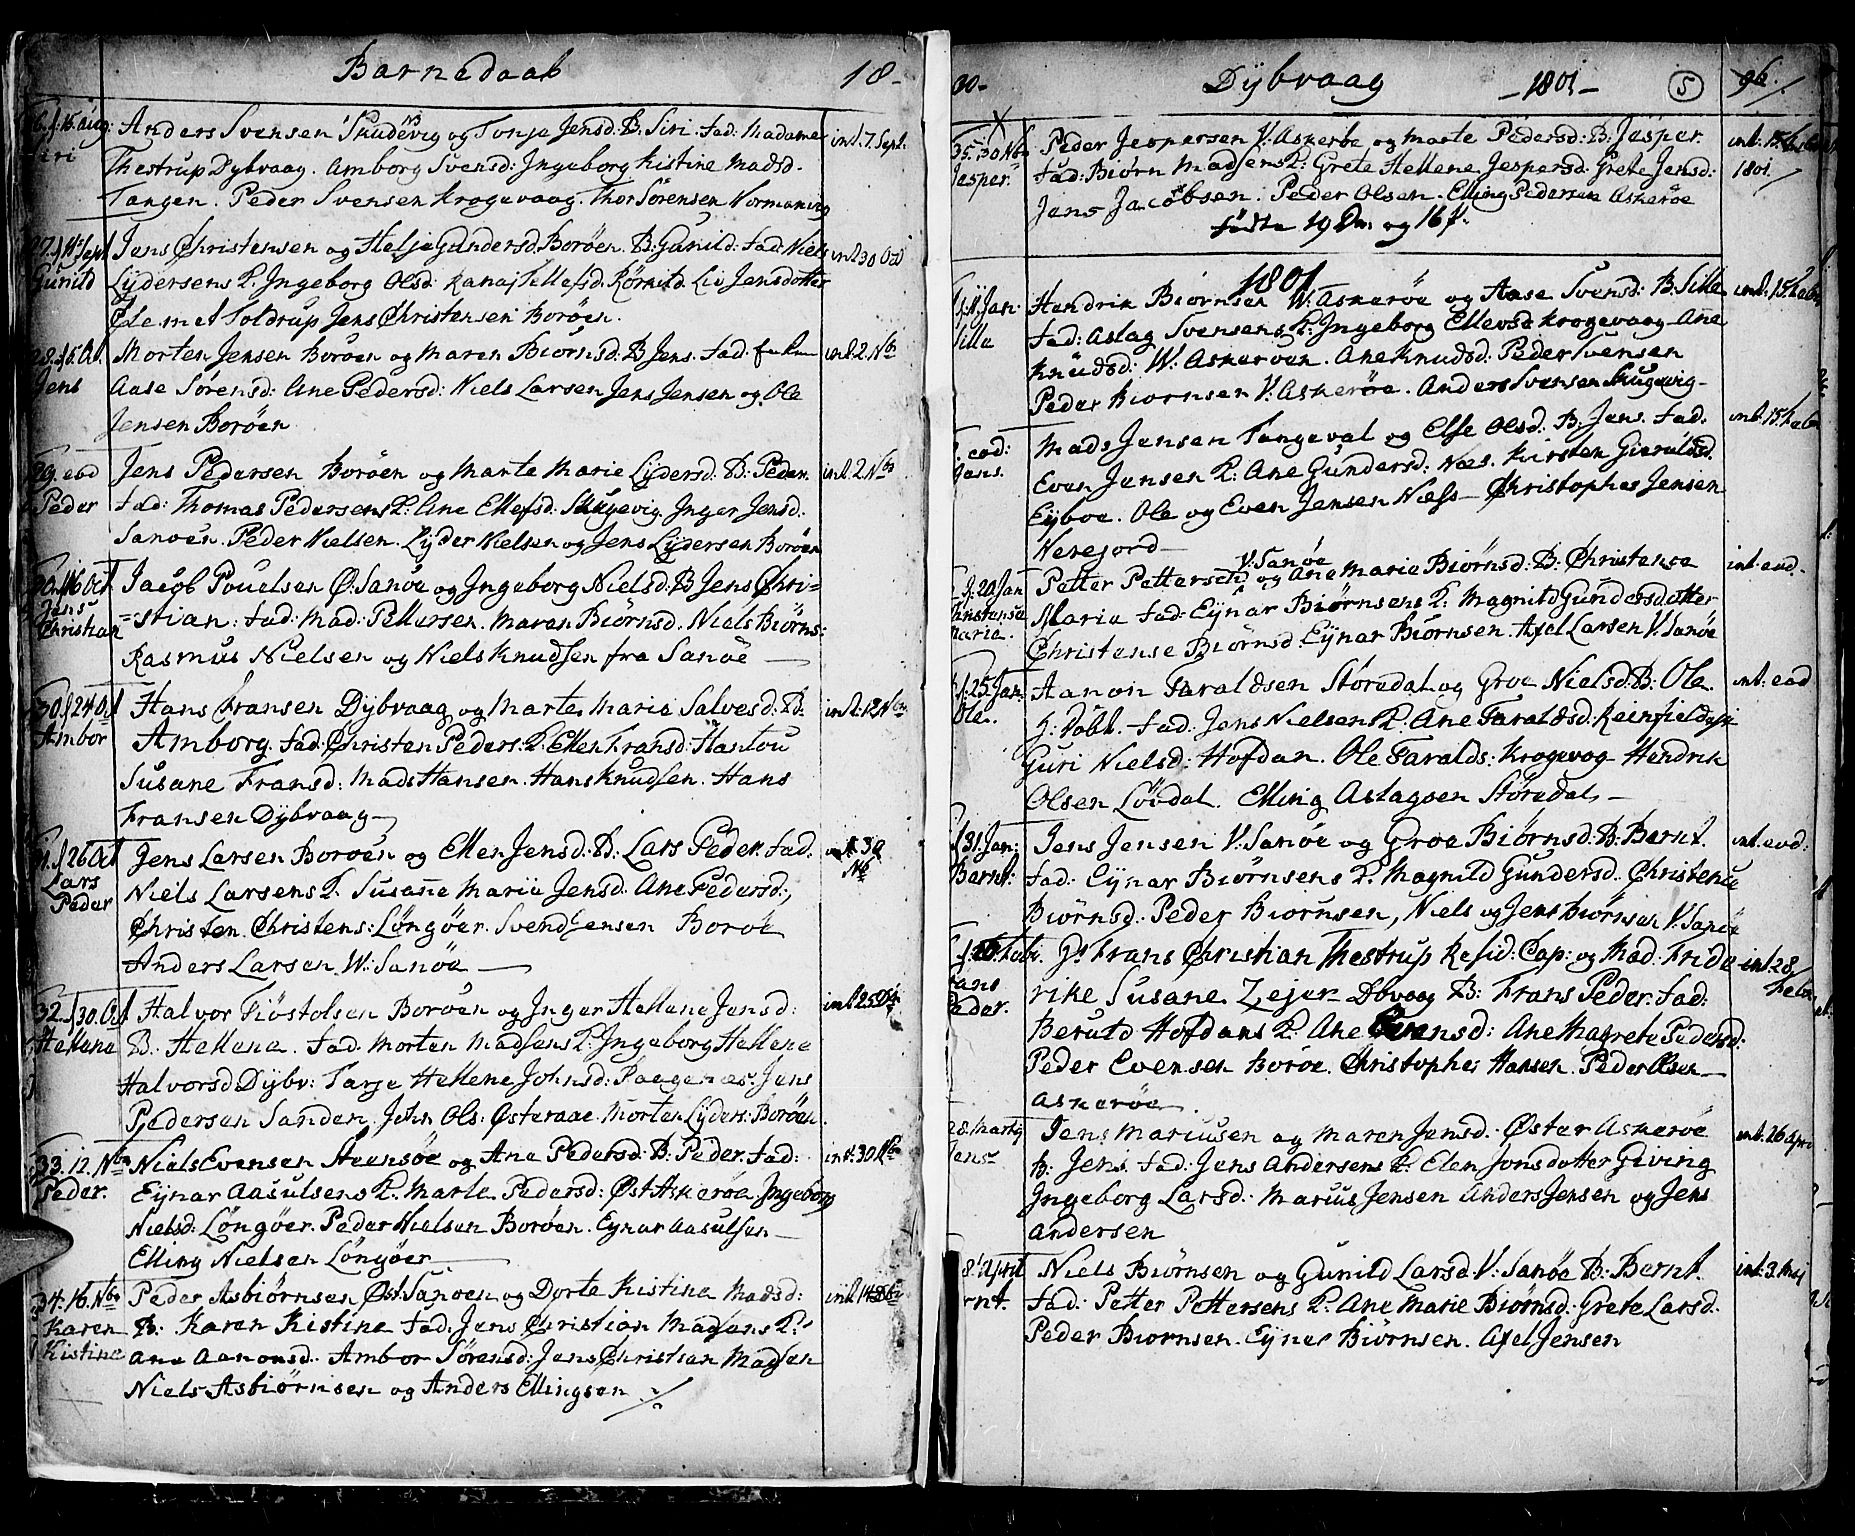 Barnedaab 18-
26. f. 16. Aug: Anders Svensen Skudevig og Tonje Jensd: B: Siri. fad: Madame int. 7. Sept.
Siri Thestrup Dybvaag. Amborg Svensd: Ingeborg Kistine Madsd.
Tangen. Peder Svensen Krogevaag. Thor Sörensen
27. f. Sept. Jens Christensen og Helje Gundersd. Boröen. B: Gunild: fad: Niels int. 30 Oct
Gunild Lydersens K. Ingeborg Olsd. Liv Jensdotter
Toldrup Jens Christensen Boröen.
28. f. 5. Oct. Morten Jensen Boröen og Maren Biörnsd: B: Jens. fad: int. 2. Nbr
Jens Aase Sörensd: Ane Pedersd: Niels Larsen Jens Jensen og Ole
Jensen Boröen
29. eod Jens Pedersen Boröen og Marte Marie Lydersd. B: Peder int. 2. Nbr
Peder fad: Thomas Pedersens K: Ane Ellefsd. Skugevig. Inger Jensd.
Sanöen. Peder Nielsen. Lyder Nielsen og Jens Lydersen Boröen
30. f. 16 Oct. Jacob Pouelsen Ö: Sanöe og Ingeborg Nielsd: B: Jens Chri-
Jens Christian =stian: fad: Mad: Pettersen. Maren Biörnsd. Niels Biörns:
Rasmus Nielsen og Niels Knudsen fra Sanöe
30. f. 24 Oct Hans Fransen Dybvaag og Marte Maria Salvesd: B: int. 12 Nbr
Ambor Amborg. fad: Christen Peders: K: Ellen Fransd:
Susane Fransd: Mads Hansen. Hans Knudsen. Hans
Fransen Dybvaag
31. f. 26 Oct Jens Larsen Boroen og Ellen Jensd: B: Lars Peder. fad. int. 30 Nb
Lars Niels Larsens K. Susane Maria Jensd. Ane Pedersd:,
Peder Christen Christens: Löngöer. Svend Jensen Boröe
Anders Larsen W: Sanöe
32. f. 30. Oct Halvor Tiöstolsen Boröen og Inger Hellene Jensd:
Hellene B. Hellene. fad. Morten Madsens K. Ingeborg Hellene
Halvorsd Dybv: Tarje Hellene Johnsd: Jens
Pedersen Sanden. John Ols: Österaae Morten Lyders: Boröen
33. 12. Nbr Niels Evensen Steensöe og Ane Pedersd: B: Peder. fad: int. 30. Nbr
Peder. Eynar Aasulsens K. Marte Pedersd: Öst Askeröe Ingeborg
Nielsd: Löngöer. Peder Nielsen Boröen. Eynar Aasulsen
Elling Nielsen Löngöer
34. 16. Nbr Peder Asbiörnsen Öst Sanoen og Dorte Kistine Madsd:
Karen B: Karen Kistine fad. Jens Christian Madsens K:
Kistine Ane Aanonsd. Ambor Sörensd: Jens Christian Madsen
Niels Asbiörnsen og Anders Ellingsen
00- Dybvaag -1801- 5 96.
35. 30 Nbr Peder Jespersen V: Askeröe og Marte Pedersd: B: Jesper int. 15. Febr
Jesper. fad: Biörn Madsens K: Grete Hellene Jespersd. Grete Jensd: 1801
Jens Jacobsen. Peder Olsen. Elling Pedersen Askeröe
födte 19 Dr. og 16 P.
1801
Jan: Hendrik Biörnsen W: Askeröe og Aase Svensd: B: Sille int. 15. Febr
Sille fad: Aslag Svensens K: Ingeborg Ellevsd Krogevaag Ane
Knudsd: W: Askeröen. Ane Knudsd: Peder Svensen
Peder Biornsen V: Askeröe. Anders Svensen Skugevig-
eod: Mads Jensen Tangeval og Else Olsd. B: Jens. fad. int. 15. Febr
Jens. Even Jensens K: Ane Gundersd: Næs. Kirsten Gieruldsd.
Eyboe. Ole og Even Jensen Næss- Christopher Jensen
Nerefjord
V: Sanöe
f: 20 Jan Petter Pettersen og Ane Marie Biörnsd: B: Christense int. eod.
Christense Maria fad: Eynar Biörnsens K: Magnild Gundersdotter
Maria. Christense Biörnsd: Eynar Biörnsen. Axel Larsen V: Sanöe
f: 25. Jan: Aanon Taraldsen Störedal og Groe Nielsd: B: Ole int. eod
Ole. fad. Jens Nielsens K: Ane Taraldsd:
Guri Nielsd: Hofdan. Ole Taralds: Krogevog Hendrik
Olsen Lövdal. Elling Aslagsen Störedal-
f 31. Jan: Jens Jensen V: Sanöe og Groe Biörnsd: B: Bernt int. eod:
Bernt: fad: Eynar Biörnsens K. Magnild Gundersd. Christense
Biörnsd: Peder Biornsen, Niels og Jens Biörnsen V: Sanöe
Febr. Hr Frans Christian Thestrup Resid: Cap: og Mad. Fride int. 28 Febr
Frans rike Susane Zejer Dbvaag B: Frans Peder. fad:
Peder. Hofdans K. Ane Evensd: Ane Magrete Pedersd:
Peder Evensen Boröe. Christopher Hansen. Peder Olsen
Askeröe
28. Marty Jens Mariusen og Maren Jensd. Öster Askeröe int. 26 Apri
Jens B: Jens. fad: Jens Andersens K. Elen Jonsdotter Geving
Ingeborg Larsd. Marius Jensen Anders Jensen og Jens
Andersen
8 April Niels Biörnsen og Gunild Larsd V: Sanöe B: Bernt. int. 3. Maj
Bernt. fad: Petter Pettersens K. Ane Marie Biörnsd: Grete Larsd.
Peder Biornsen. Eynar Biörnsen. Axel Jensen